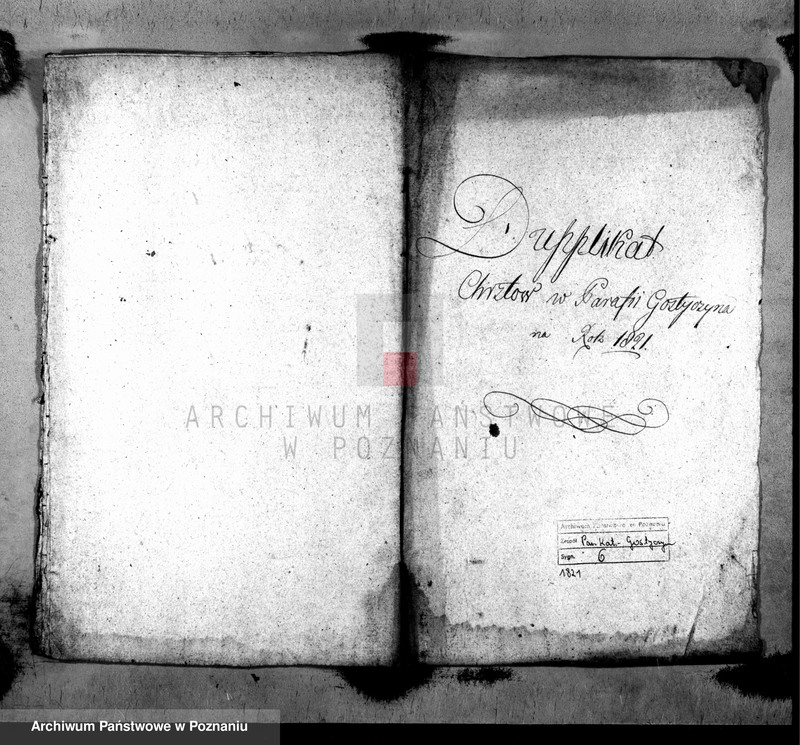 Dupplikat
Chrztow w Parafii Gostyczyna
na Rok 1821.
ARCHIWUM PAŃSTWOWE
W POZNANIU
Archiwum Państwowe w Poznaniu
Zespół Par. Kat. Gostyczyn
Sygn. 6
1821
Archiwum Państwowe w Poznaniu